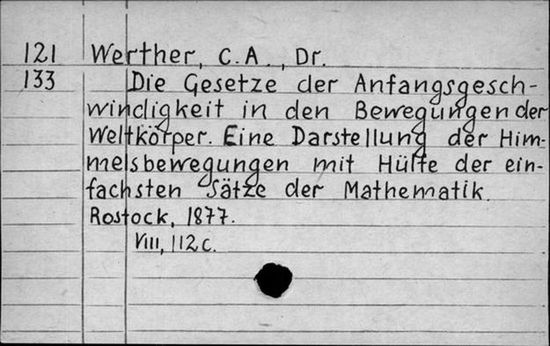 121 Werther, C.A., Dr.
133 Die Gesetze der Anfangsgesch-
windigkeit in den Bewegungen der
Weltkörper. Eine Darstellung der Him-
melsbewegungen mit Hülfe der ein-
fachsten Sätze der Mathematik.
Rostock, 1877.
VIII, 112 c.